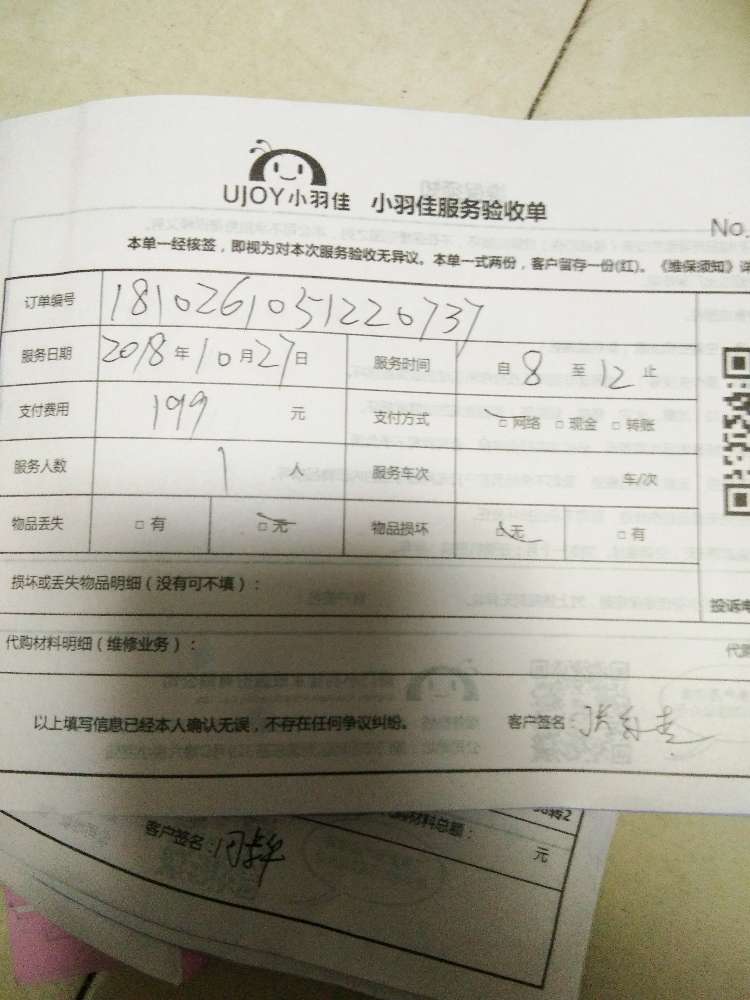 UJOY小羽佳 小羽佳服务验收单
No.
本单一经核签，即视为对本次服务验收无异议。本单一式两份，客户留存一份(红)。《维保须知》详
订单编号 1810261051220737
服务日期 2018年10月27日 服务时间 自8至12止
支付费用 199 元 支付方式 □网络 □现金 □转账
服务人数 1 人 服务车次 车/次
物品丢失 □有 □无 物品损坏 □无 □有
损坏或丢失物品明细（没有可不填）：
投诉电
代购材料明细（维修业务）：
代购
以上填写信息已经本人确认无误，不存在任何争议纠纷。 客户签名：
转2
材料总额： 元
客户签名：